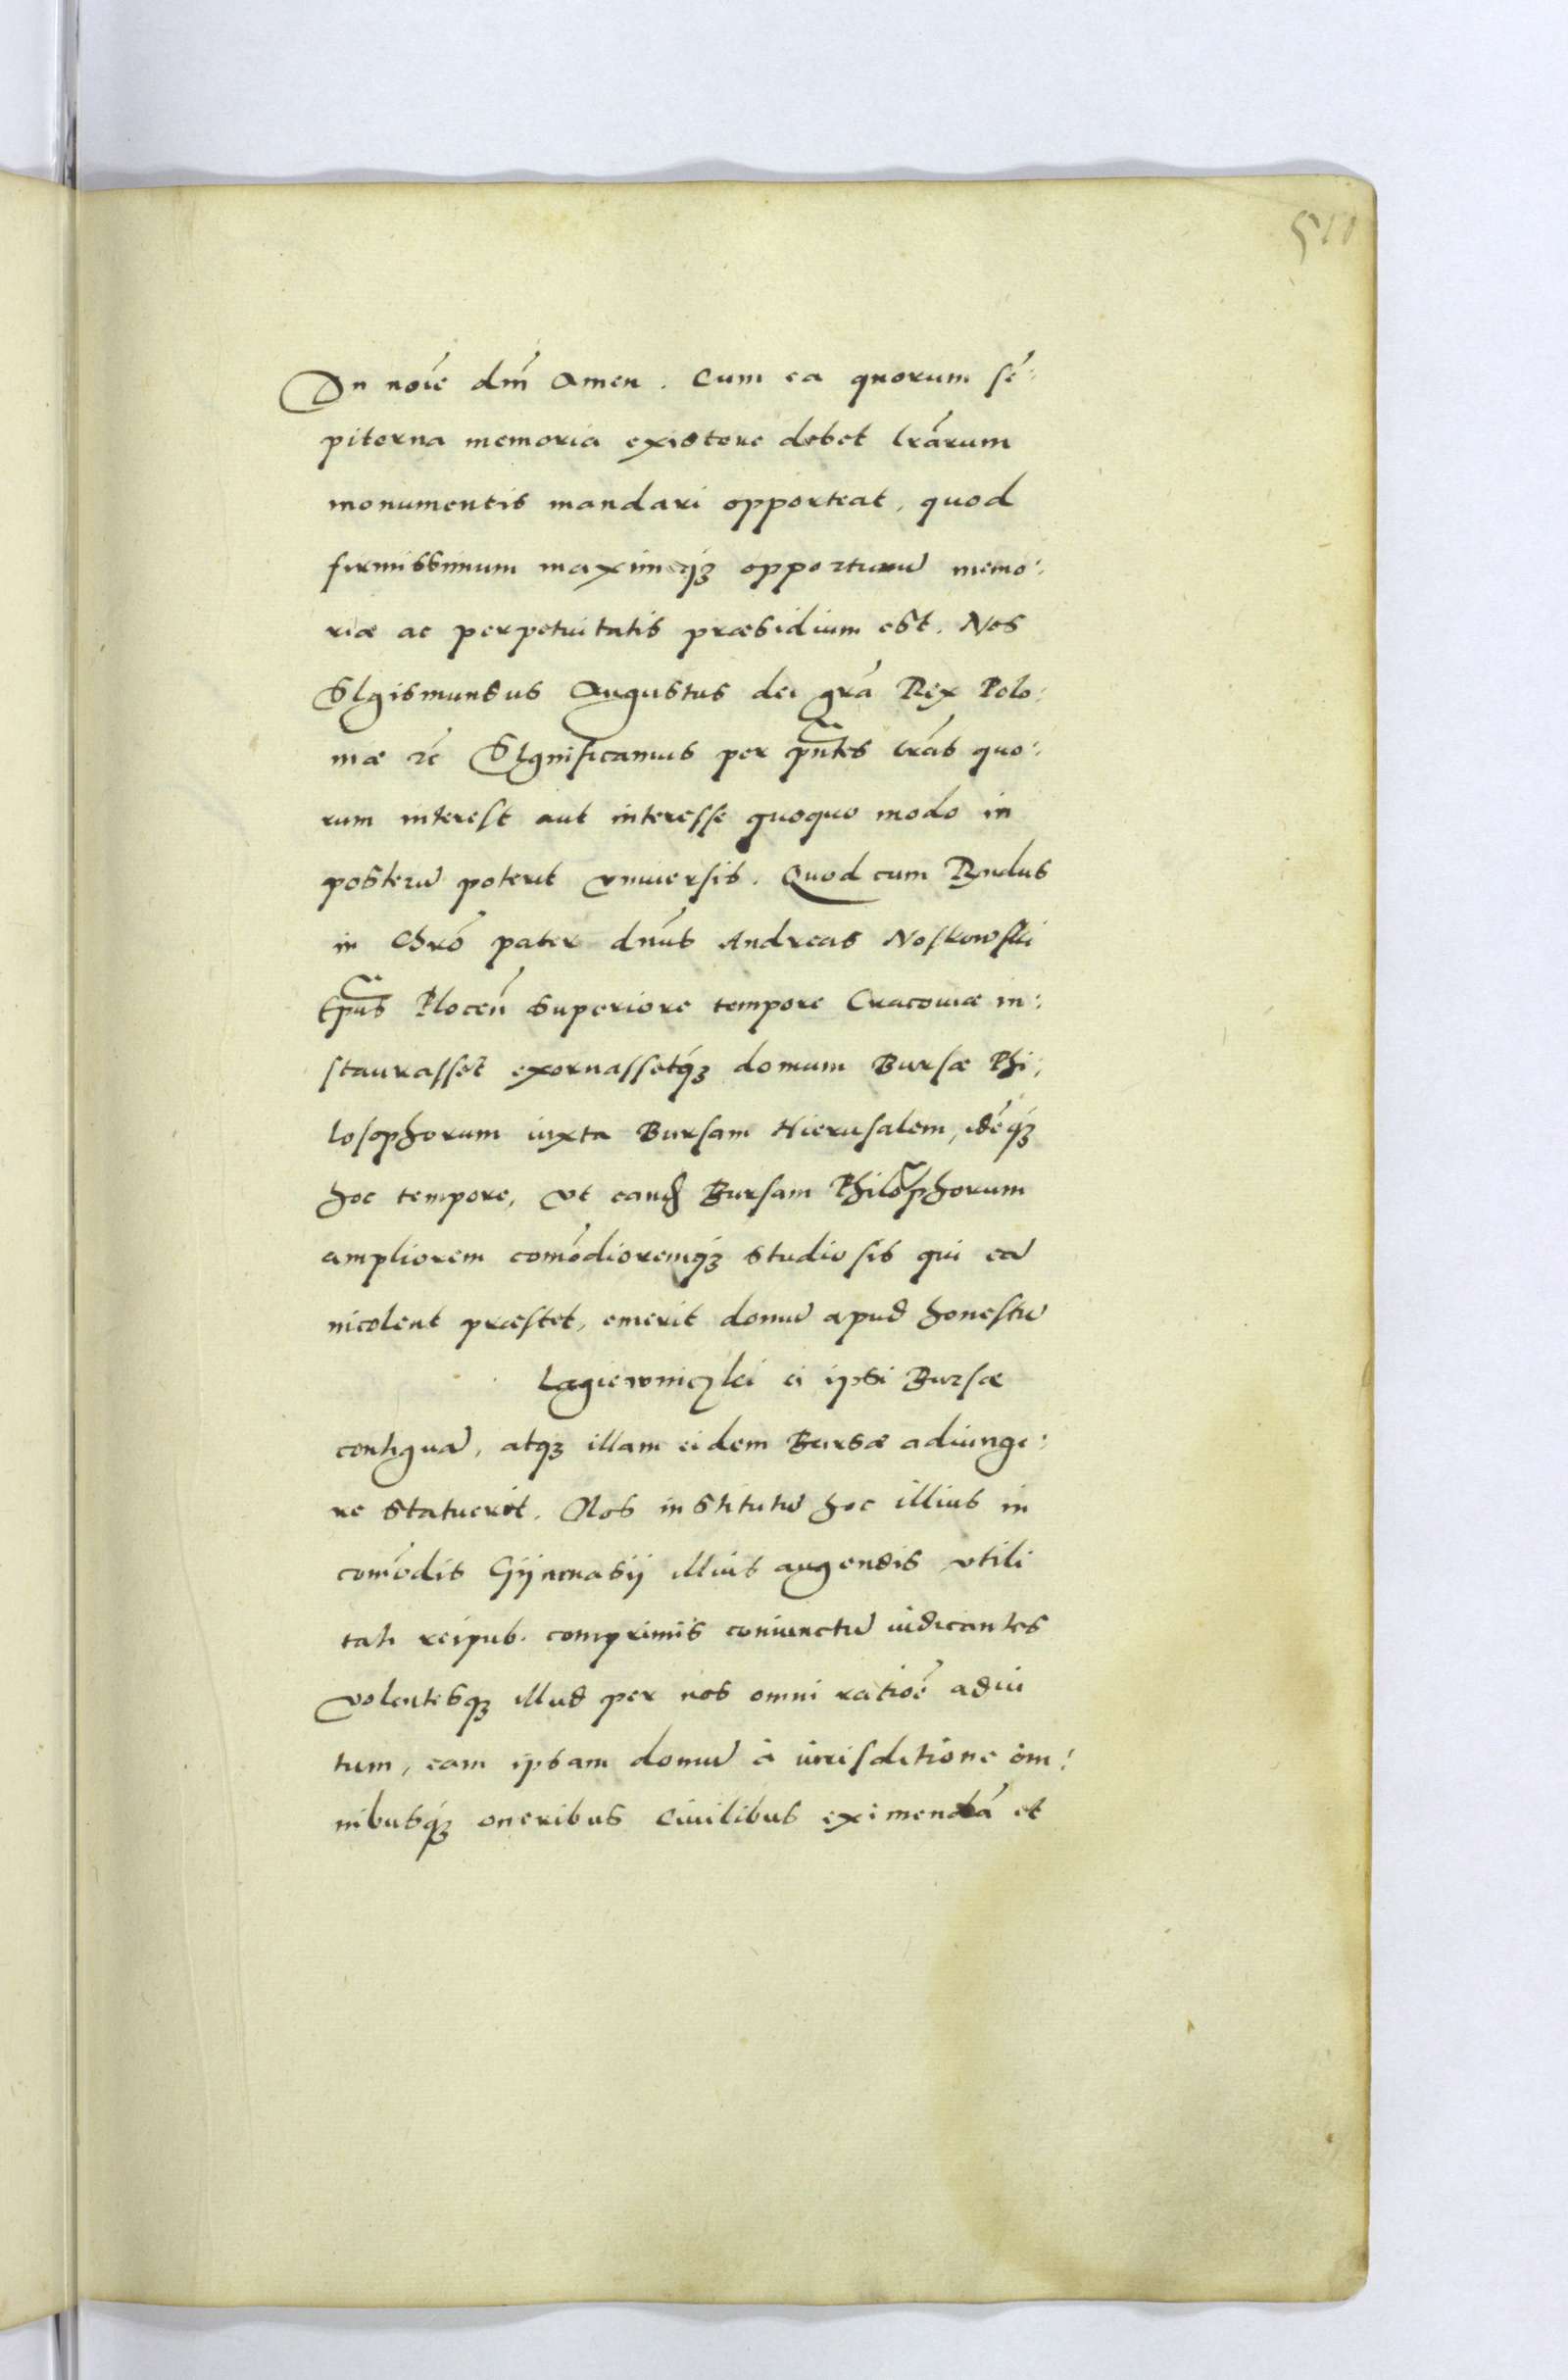 511
In noıē dm̄ Amen. Cum ea quorum sē:
piterna memoria existere debet lrārum
monumentis mandari opporteat, quod
firmissimum maximeq̄ȝ opportunū memo:
riæ ac perpetuitatis præsidium est. Nos
SIgismundus Augustus dei grā Rex Polo:
niæ ꝛc̄ SIgnificamus per pn̄tes lrās quo:
rum interest aut interesse quoquo modo in
posterū poterit vniuersis. Quod cum Rndus
in Chrō pater dnūs Andreas Noskowski
Ep̄us Plocen̄ superiore tempore Cracouiæ in:
staurasset exornassetq́ȝ domum Bursæ Phi:
losophorum iuxta Bursam Hierusalem, idēq́ȝ
hoc tempore, vt eand̄ Bursam Philōphorum
ampliorem com̄odioremq́ȝ studiosis qui eā
incolent præstet, emerit domū apud honestū
Łagiewniczki ei ipsi Bursæ
contiguā, atqȝ illam eidem Bursæ adiunge:
re statuerit. Nos institutū hoc illius in
com̄odis Gÿmnasij illius augendis vtili
tati reipub. comprimis coniunctū iudicantes
volentesqȝ illud per nos omni ratioē adiu
tum, eam ipsam domū à iurisditione om:
nibusq́ȝ oneribus ciuilibus eximendā et